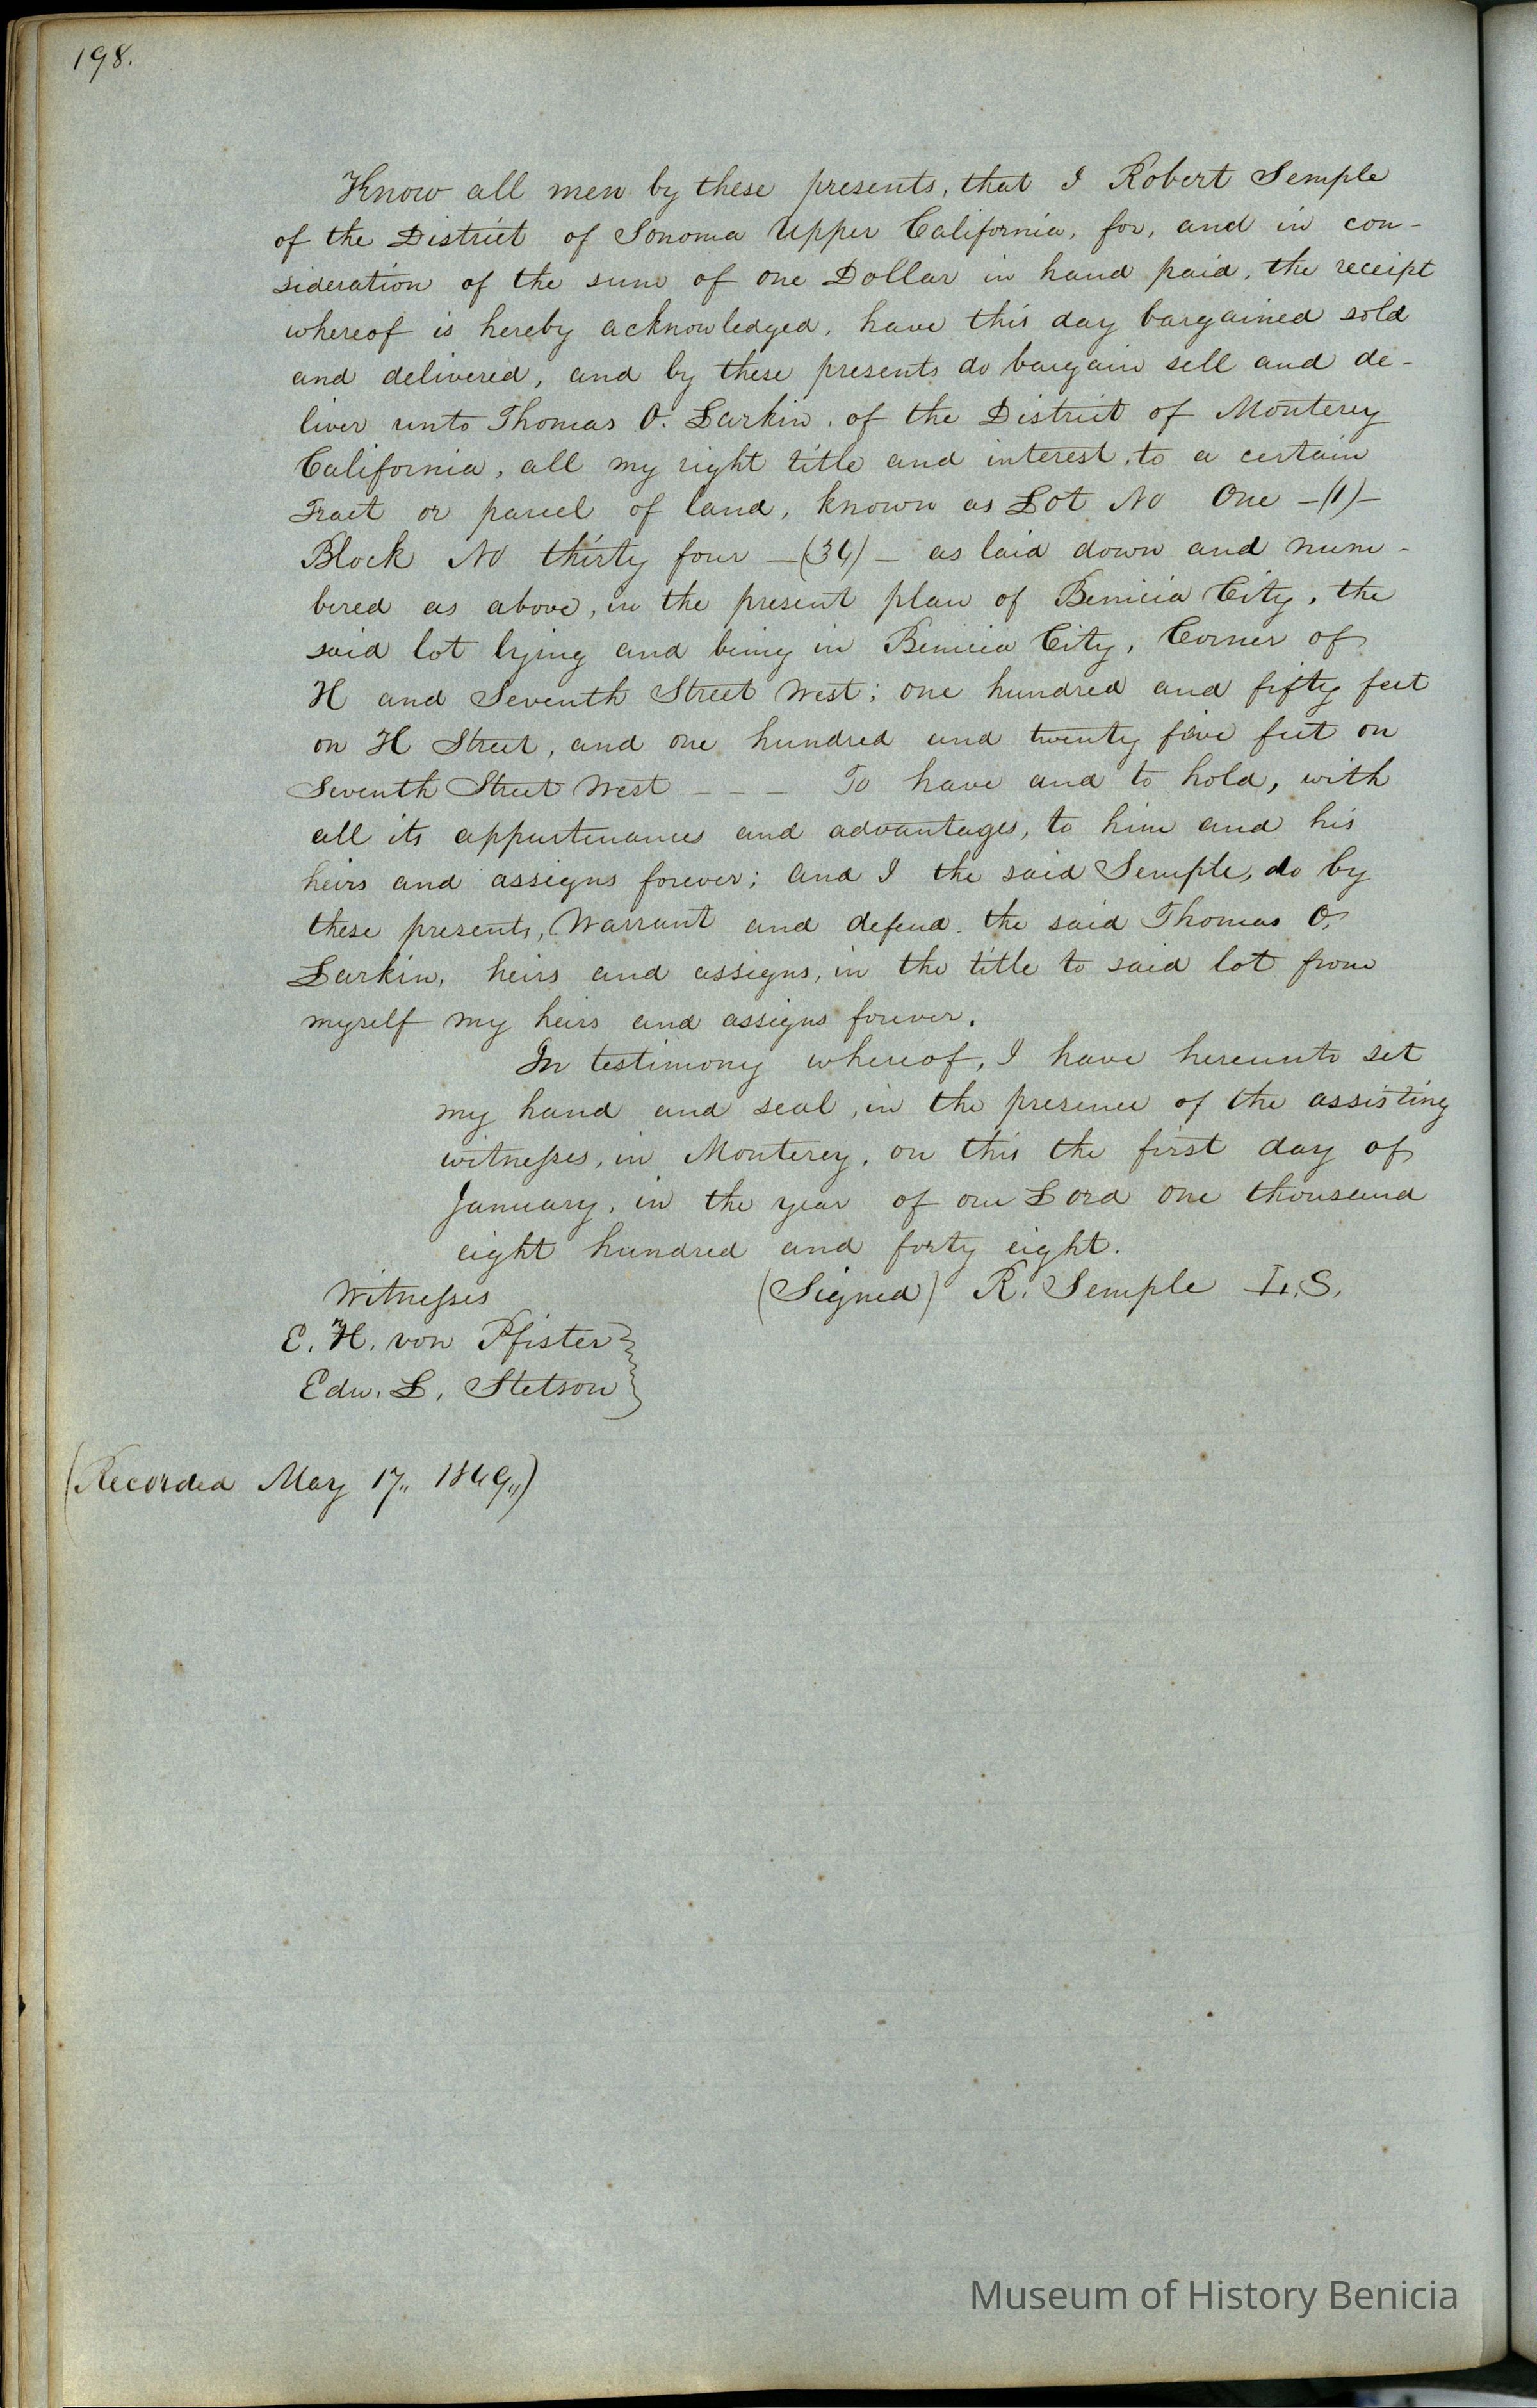 198.
Know all men by these presents, that I Robert Semple
of the District of Sonoma Upper California, for, and in con-
sideration of the sum of one Dollar in hand paid, the receipt
whereof is hereby acknowledged, have this day bargained sold
and delivered, and by these presents do bargain sell and de-
liver unto Thomas O. Larkin, of the District of Monterey
California, all my right title and interest, to a certain
Tract or parcel of land, known as Lot No One -(1)-
Block No thirty four -(34)- as laid down and num-
bered as above, in the present plan of Benicia City, the
said lot lying and being in Benicia City, Corner of
H and Seventh Street West; one hundred and fifty feet
on H Street, and one hundred and twenty five feet on
Seventh Street West - - - To have and to hold, with
all its appurtenances and advantages, to him and his
heirs and assigns forever; and I the said Semple, do by
these presents, Warrant and defend. the said Thomas O.
Larkin, heirs and assigns, in the title to said lot from
myself my heirs and assigns forever.
In testimony whereof, I have hereunto set
my hand and seal, in the presence of the assisting
witnesses, in Monterey, on this the first day of
January, in the year of our Lord one thousand
eight hundred and forty eight.
Witnesses (Signed) R. Semple L.S.
E. H. von Pfister
Edw. L. Stetson
(Recorded May 17,, 1849,,)
Museum of History Benicia